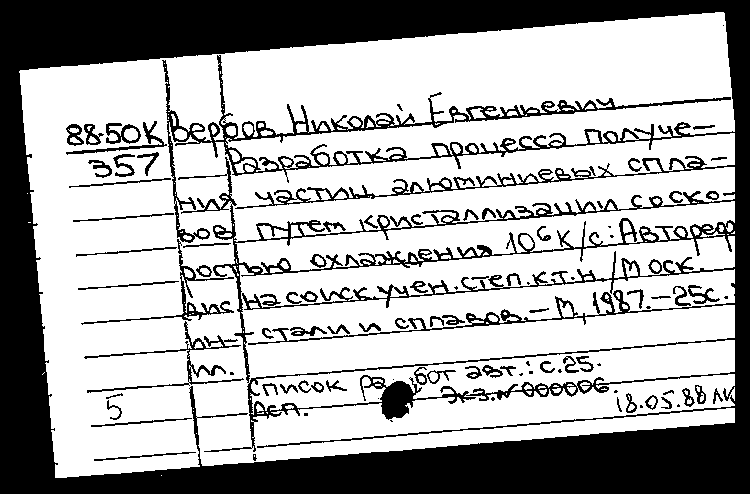 88-50К Вербов, Николай Евгеньевич
357 Разработка процесса получе-
ния частиц алюминиевых спла-
вов путем кристаллизации со ско-
ростью охлаждения 10⁶ К/с: Автореф
дис на соиск. учен. степ. к.т.н. / Моск.
ин-т стали и сплавов. - М, 1987. - 25с.
ил.
Список работ авт.: с.25.
5 Деп. Экз. № 000006.
18.05.88 ЛК